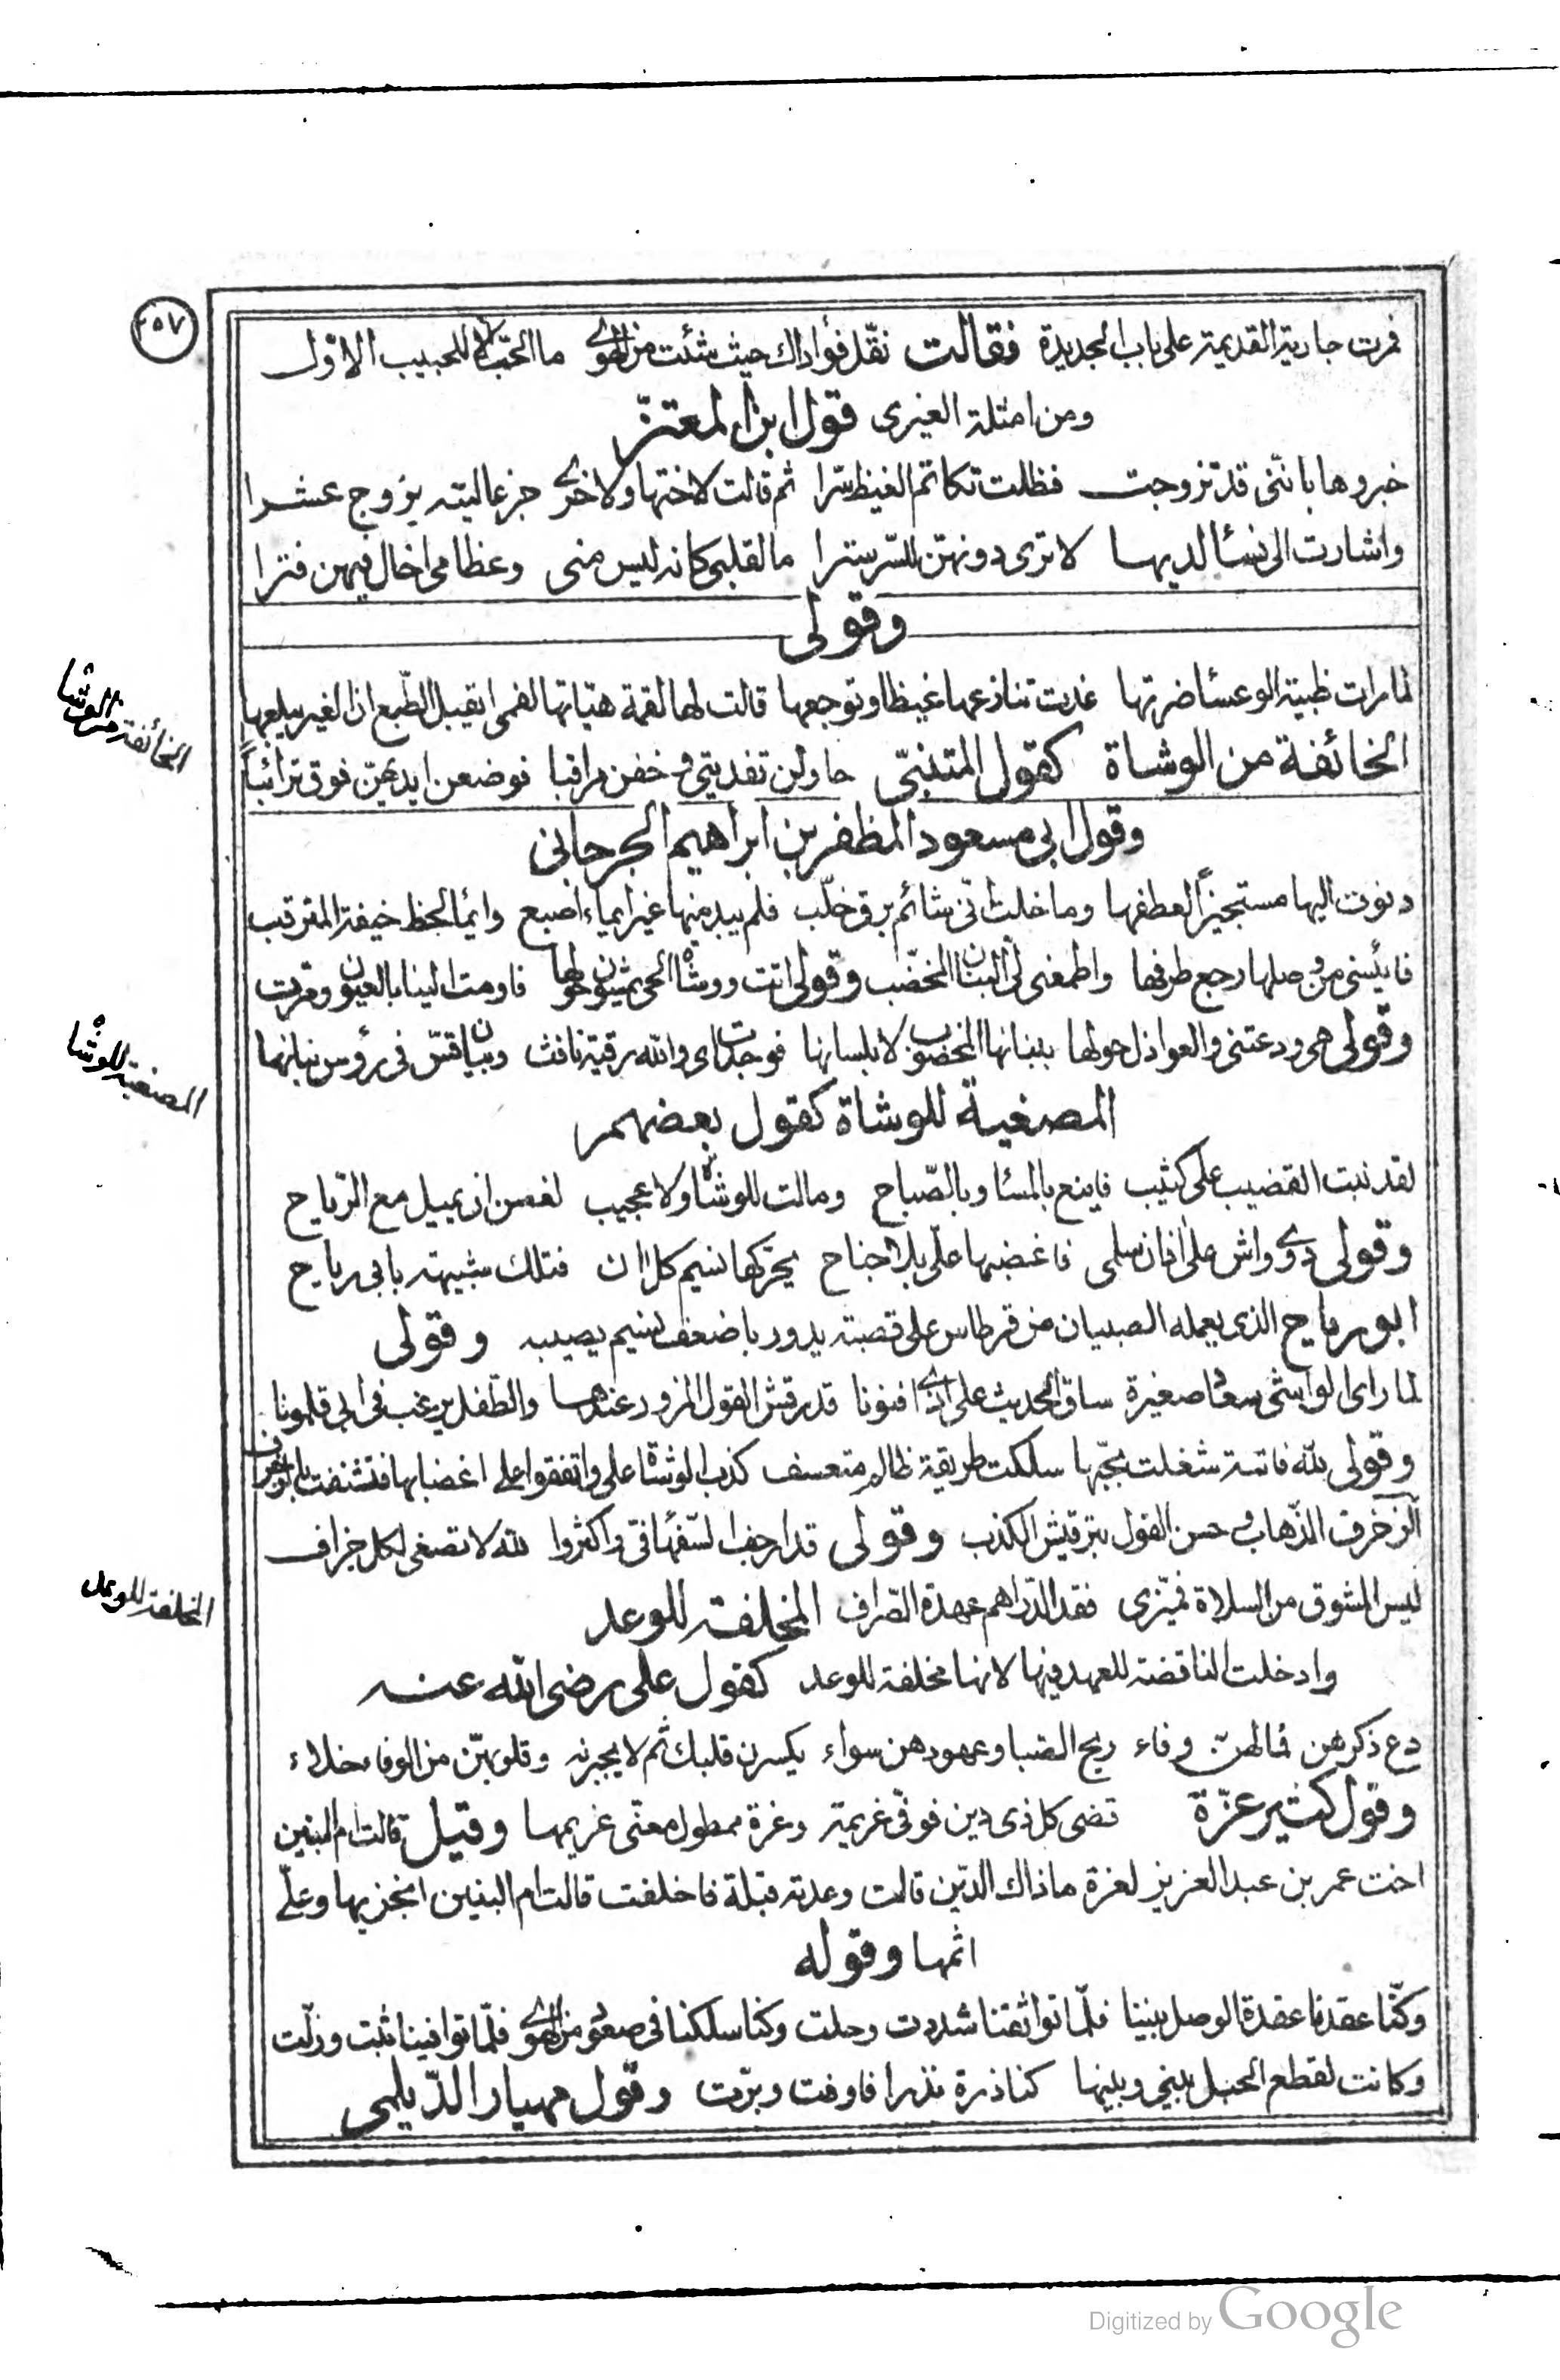 ٢٥٧
فمرت جارية القديمة على باب الجديدة فقالت نقّل فؤادك حيث شئت من الهوى ما الحبّ الا للحبيب الاوّل
ومن امثلة الغيرى قول ابن المعتزّ
خبروها بانّنى قد تزوجت فظلت تكاتم الغيظ سرّا ثم قالت لاختها ولاخرى جزعا ليته يزوج عشرا
واشارت الى نسأ لديها لا ترى دونهنّ للسّر سترا ما لقلبى كانه ليس منى وعظامى اخال فيهن فترا
وقولى
لما رات ظبية الوعسأ ضرتها غدت تنازعها غيظا وتوجعها قالت لها لقمة هيّاتها لفمى ايقبل الطّبع ان الغير يبلعها
الخائفة من الوشاة
الخائفة من الوشاة كقول المتنبّى حاولن تفديتى وخفن مراقبا فوضعن ايديهنّ فوق ترائباً
وقول ابى مسعود المظفر بن ابراهيم الجرجانى
دنوت اليها مستجيزاً لعطفها وما خلت انّى شائم برق خلّب فلم يبد منها غير ايماء اصبع وايما لحظ خيفة المترقب
فايئسنى من وصلها رجع طرفها واطمعنى لى البنان المخضّب وقولى اتت ووشاة الحى يمشون حولها فاومت الينا بالعيون وقربت
وقولى هى ودعتنى والعواذل حولها ببنانها المخضوب لا بلسانها فوجدت اى والله رقية نافث وبيان قسّ فى رؤس بنانها
المصغية للوشاة
المصغية للوشاة كقول بعضهم
لقد نبت القضيب على كثيب فاينع بالمسأ وبالصّباح ومالت للوشاة ولا عجيب لغصن ان يميل مع الرّياح
وقولى واش على افنان سلمى فاغضبها علّى بلا جناح يحرّكها نسيم كل ان فتلك شبيهة بابى رياح
ابو رياح الذى يعمله الصبيان من قرطاس على قصبة يدور باضعف نسيم يصيبه وقولى
لما راى الواشى سعادا صغيرة ساق الحديث على اذى افنونا قد رقش القول المزور عندها والطّفل يرغب فى ابى قلمونا
وقولى لله فاتنة شغلت بحبّها سلكت طريقة ظالم متعسف كذب الوشاة على واتفقوا على اغضابها فتشنفت بالزخرف
الزخرف الذّهاب وحسن القول بترقيش الكذب وقولى قد ارجف السّفهأ فى واكثروا لله لا تصغى لكل جزاف
المخلفة للوعد
ليس المشوق من السلاة فميّزى فقد الدّراهم عهدة الصّراف المخلفة للوعد
وادخلت الناقضة للعهد فيها لانها مخلفة للوعد كقول على رضى الله عنه
دع ذكرهن فما لهنّ وفاء ريح الصبا وعهودهن سواء يكسرن قلبك ثم لا يجبرنه وقلوبهنّ من الوفاء خلاء
وقول كثير عزّة قضى كل ذى دين فوفى غريمه وعزة ممطول معنّى غريمها وقيل قالت ام البنين
اخت عمر بن عبد العزيز لعزة ما ذاك الدّين قالت وعدته قبلة فاخلفت قالت ام البنين انجزيها وعلّى
اثمها وقوله
وكنّا عقدنا عقدة الوصل بيننا فلّما تواثقنا شددت وحلت وكنا سلكنا فى صعود من الهوى فلمّا توافينا ثبت وزلّت
وكانت لقطع الحبل بينى وبينها كناذرة نذرا فاوفت وبرّت وقول مهيار الدّيلمى
Digitized by Google